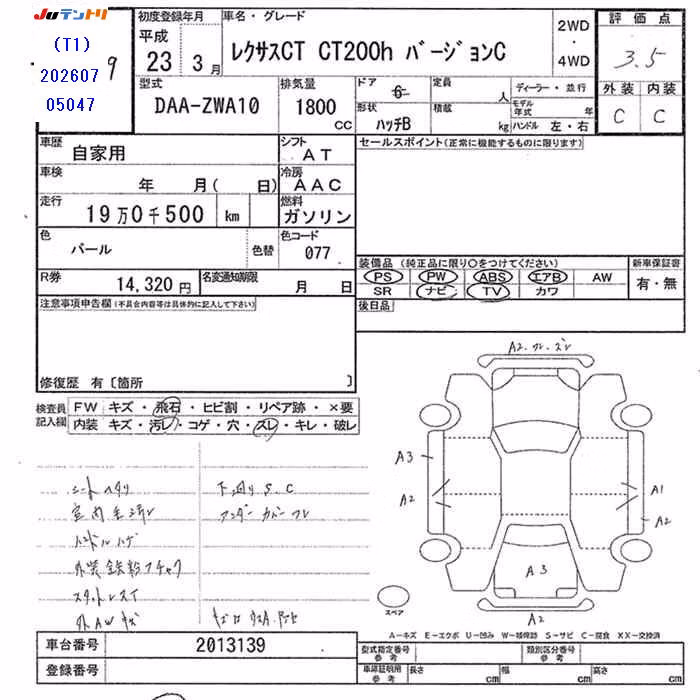 JUテントリ
(T1)
202607
05047
9
初度登録年月
平成
23 3月
車名・グレード
レクサスCT CT200h バージョンC
2WD
4WD
評価点
3.5
型式
DAA-ZWA10
排気量
1800
CC
ドア
6
定員
人
形状
ハッチB
積載
kg
ディーラー・並行
モデル年式
年
ハンドル 左・右
外装 内装
C C
車歴
自家用
シフト
AT
セールスポイント(正常に機能するものに限ります)
車検
年 月( 日)
冷房
AAC
走行
19万0千500 km
燃料
ガソリン
色
パール
色替
色コード
077
装備品 (純正品に限り○をつけてください)
新車保証書
PS PW ABS エアB AW
有・無
SR ナビ TV カワ
R券
14,320円
名変通知期限
月 日
後日品
注意事項申告欄(不具合内容等は具体的に記入して下さい)
修復歴 有〔箇所 〕
検査員
記入欄
FW キズ・飛石・ヒビ割・リペア跡・×要
内装 キズ・汚レ・コゲ・穴・スレ・キレ・破レ
シートヘタリ
下回りS.C
室内毛汚レ
アンダーカバーワレ
ハンドルハゲ
外装鉄粉フチャク
スタットレスT
外AWキズ
A2.ワレ.ズレ
A3
A2
A1
A2
A3
A2
スペア
A-キズ E-エクボ U-凹み W-補修跡 S-サビ C-腐食 XX-交換済
車台番号
2013139
登録番号
型式指定番号
参考
類別区分番号
参考
車庫証明用
参考
長さ
cm
幅
cm
高さ
cm